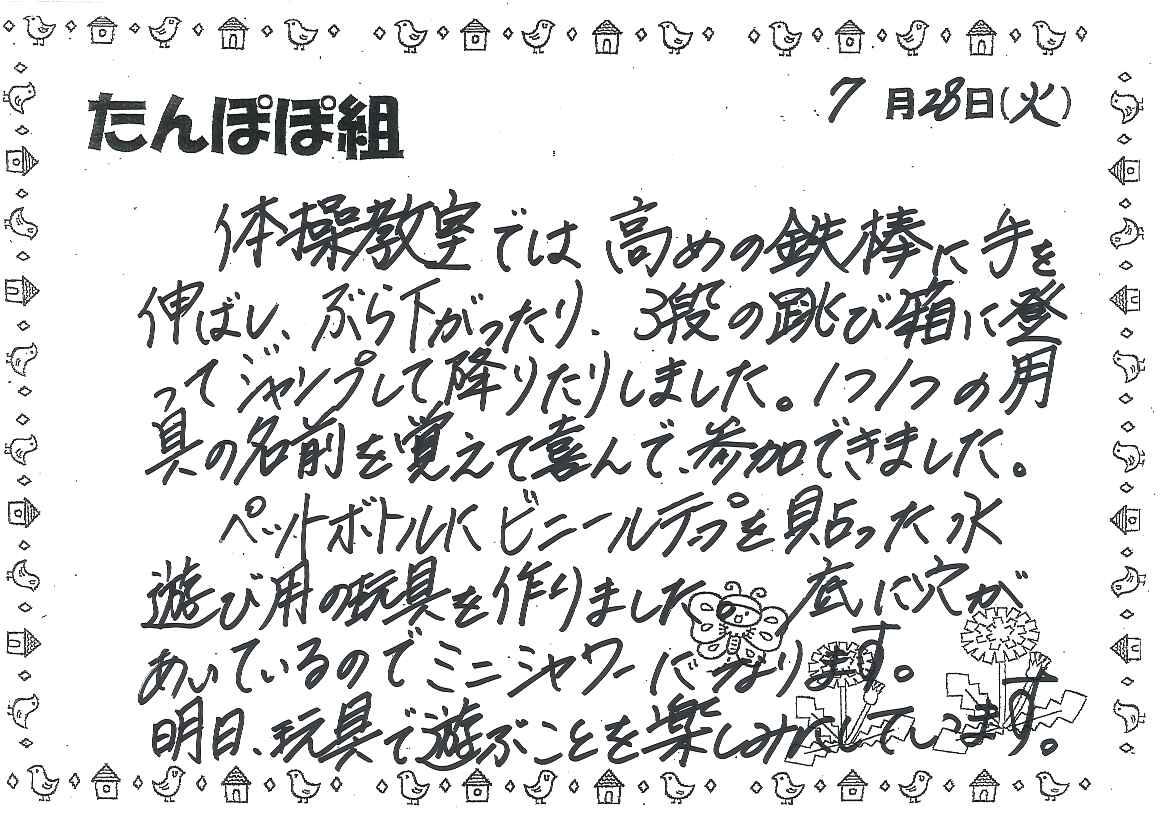 たんぽぽ組
7月28日(火)
体操教室では高めの鉄棒に手を
伸ばし、ぶら下がったり、3段の跳び箱に登
ってジャンプして降りたりしました。1つ1つの用
具の名前を覚えて喜んで、参加できました。
ペットボトルにビニールテープを貼った水
遊び用の玩具を作りました。底に穴が
あいているのでミニシャワーになります。
明日、玩具で遊ぶことを楽しみにしています。